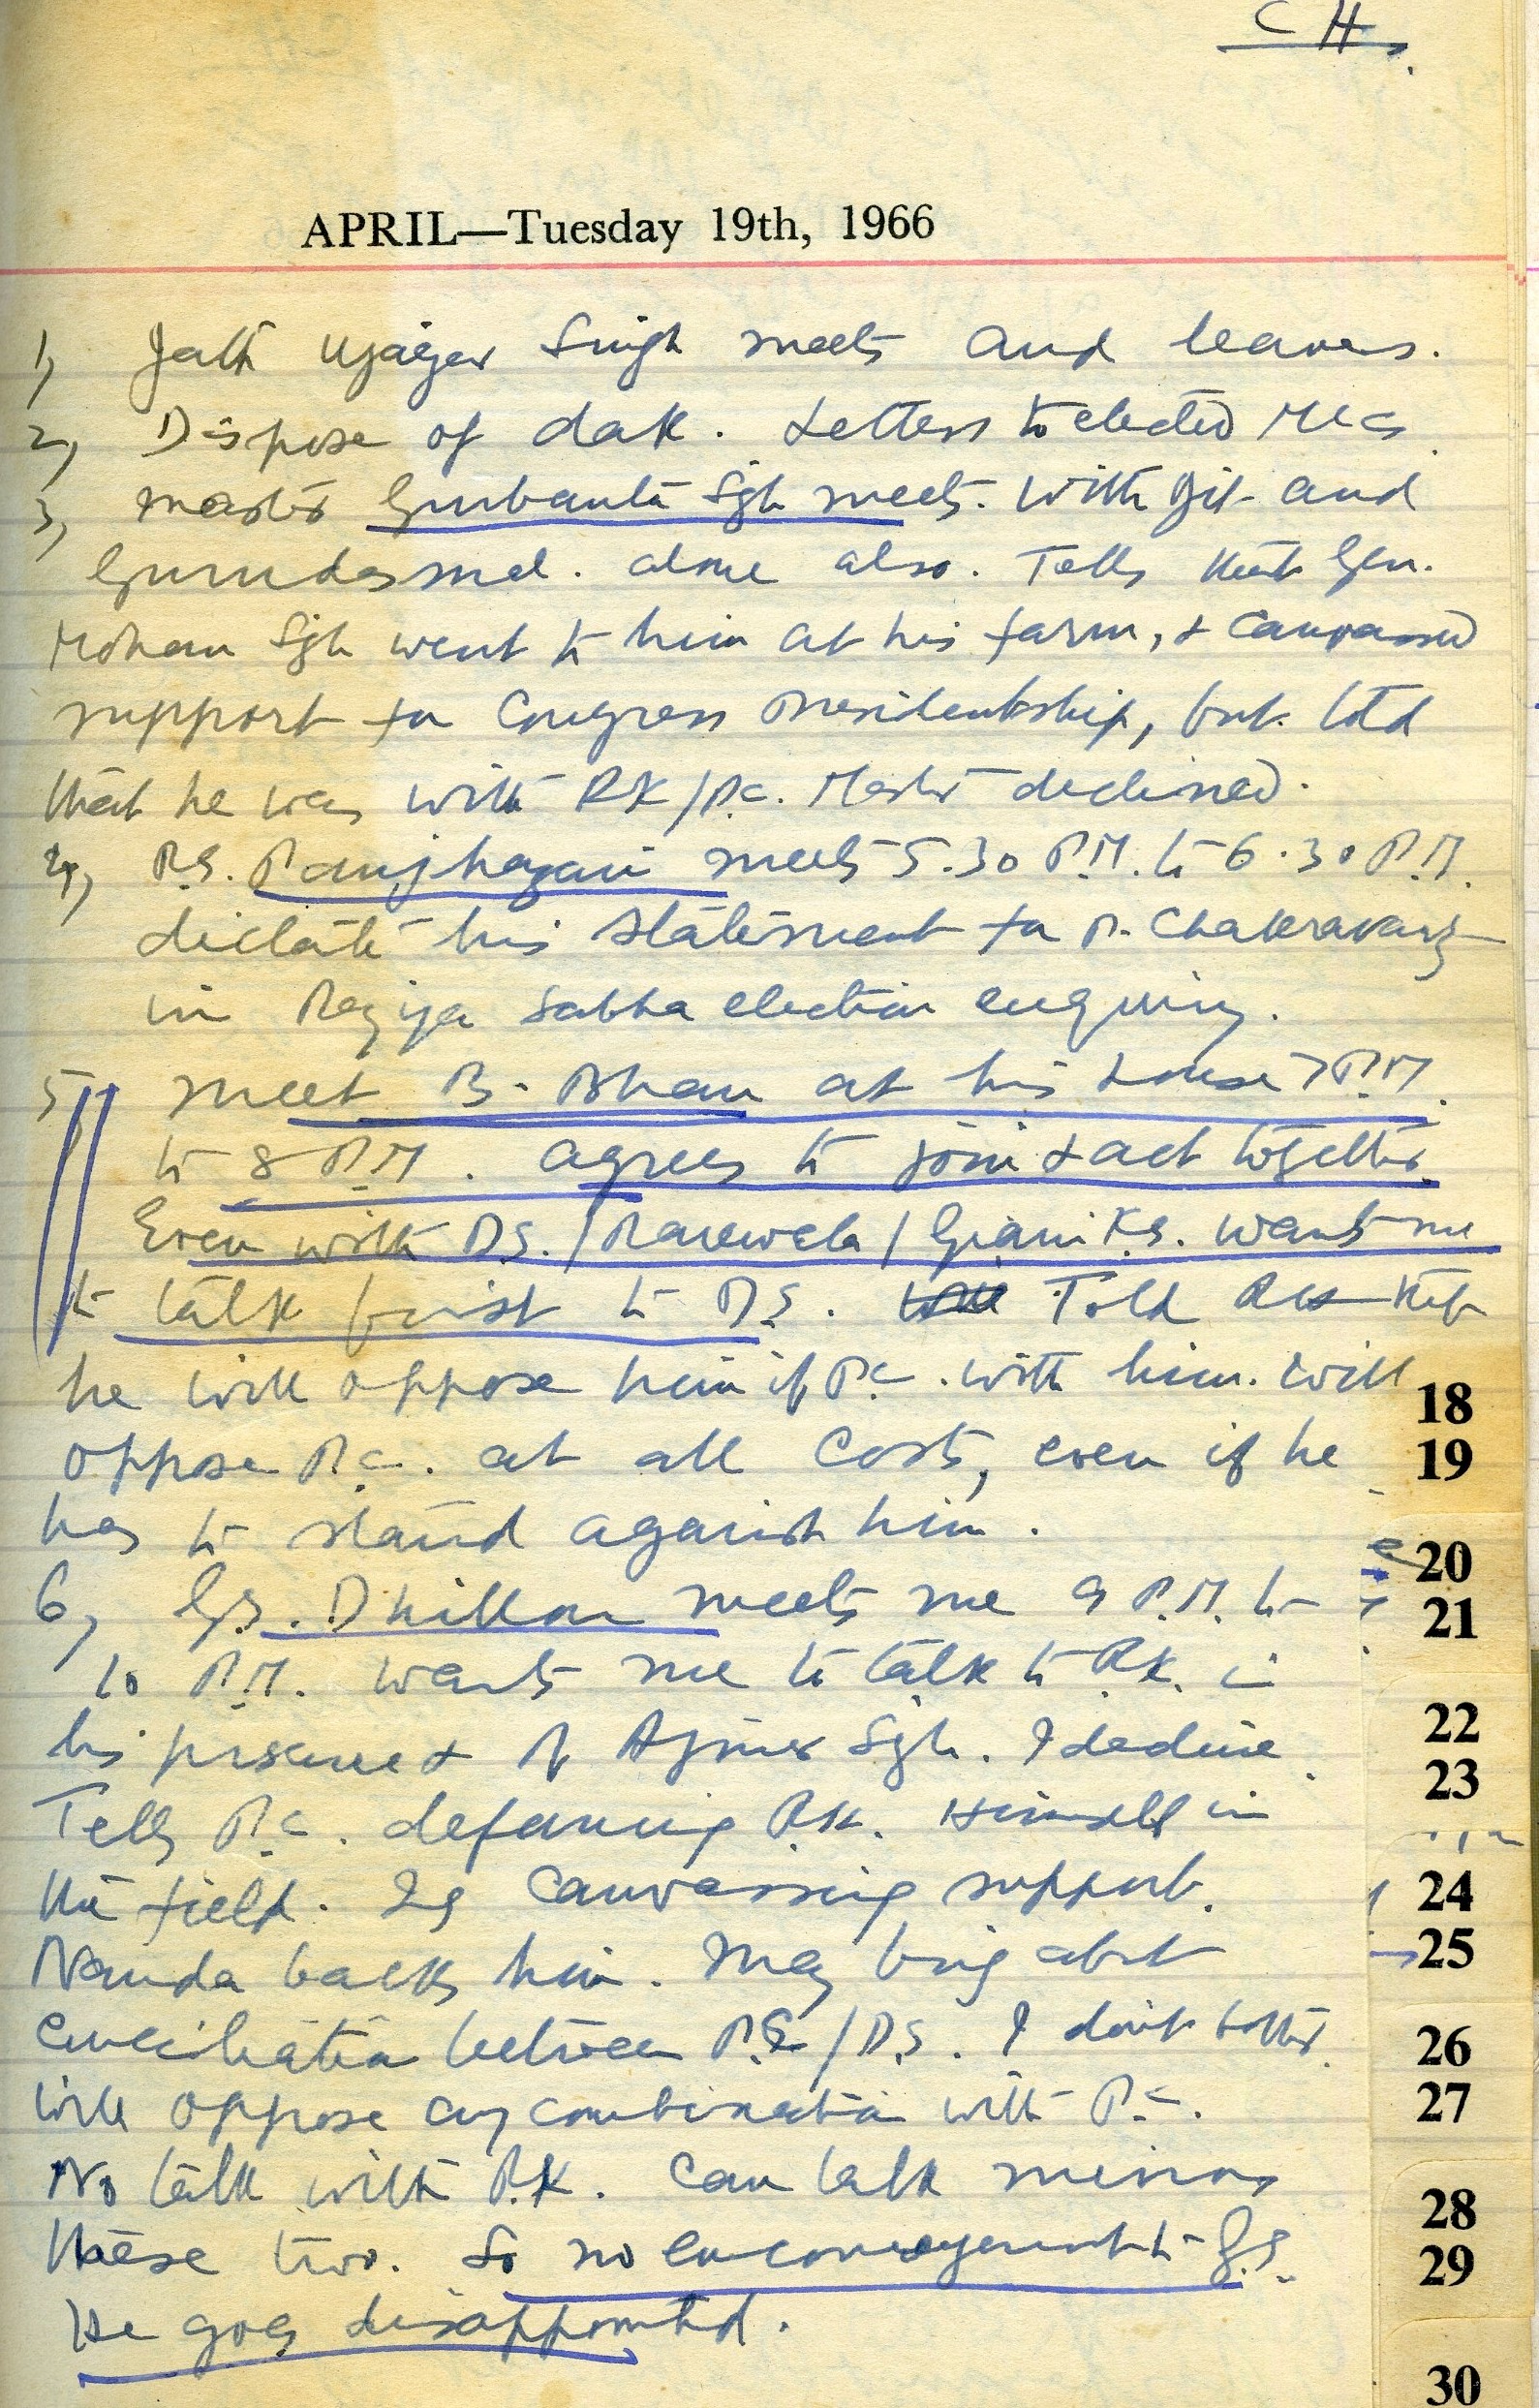 CH.
APRIL—Tuesday 19th, 1966
1, Jath Ujagar Singh meets and leaves.
2, Dispose of dak. Letters to elected MLCs.
3, Master Gurbanta Sgh meets. With Bir and
Gurudasmal. alone also. Tells that Gen.
Mohan Sgh went to him at his farm, & canvassed
support for Congress Presidentship, but told
that he was with RK/P.C. Master declined.
4, R.S. Panjhazari meets 5.30 P.M. to 6.30 P.M.
dictate his statement for P. Chakravarty
in Rajya Sabha election enquiry.
5, Meet B. Bhan at his house 7 P.M.
to 8 P.M. agrees to join & act together
Even with D.S./Rarewala/Giani K.S. wants me
to talk first to D.S. Told RK that
he will oppose him if P.C. with him. Will
oppose P.C. at all costs, even if he
has to stand against him.
6, G.S. Dhillon meets me 9 P.M. to
10 P.M. wants me to talk to R.K. in
his presence & of Ajmer Sgh. I decline.
Tells P.C. defaming R.K. Himself in
the field. Is canvassing support.
Nanda backs him. May bring abt
conciliation between P.C/D.S. I don't bother.
Will oppose any combination with P.C.
No talk with R.K. Can talk minus
these two. So no encouragement to G.S.
He goes disappointed.
18
19
20
21
22
23
24
25
26
27
28
29
30